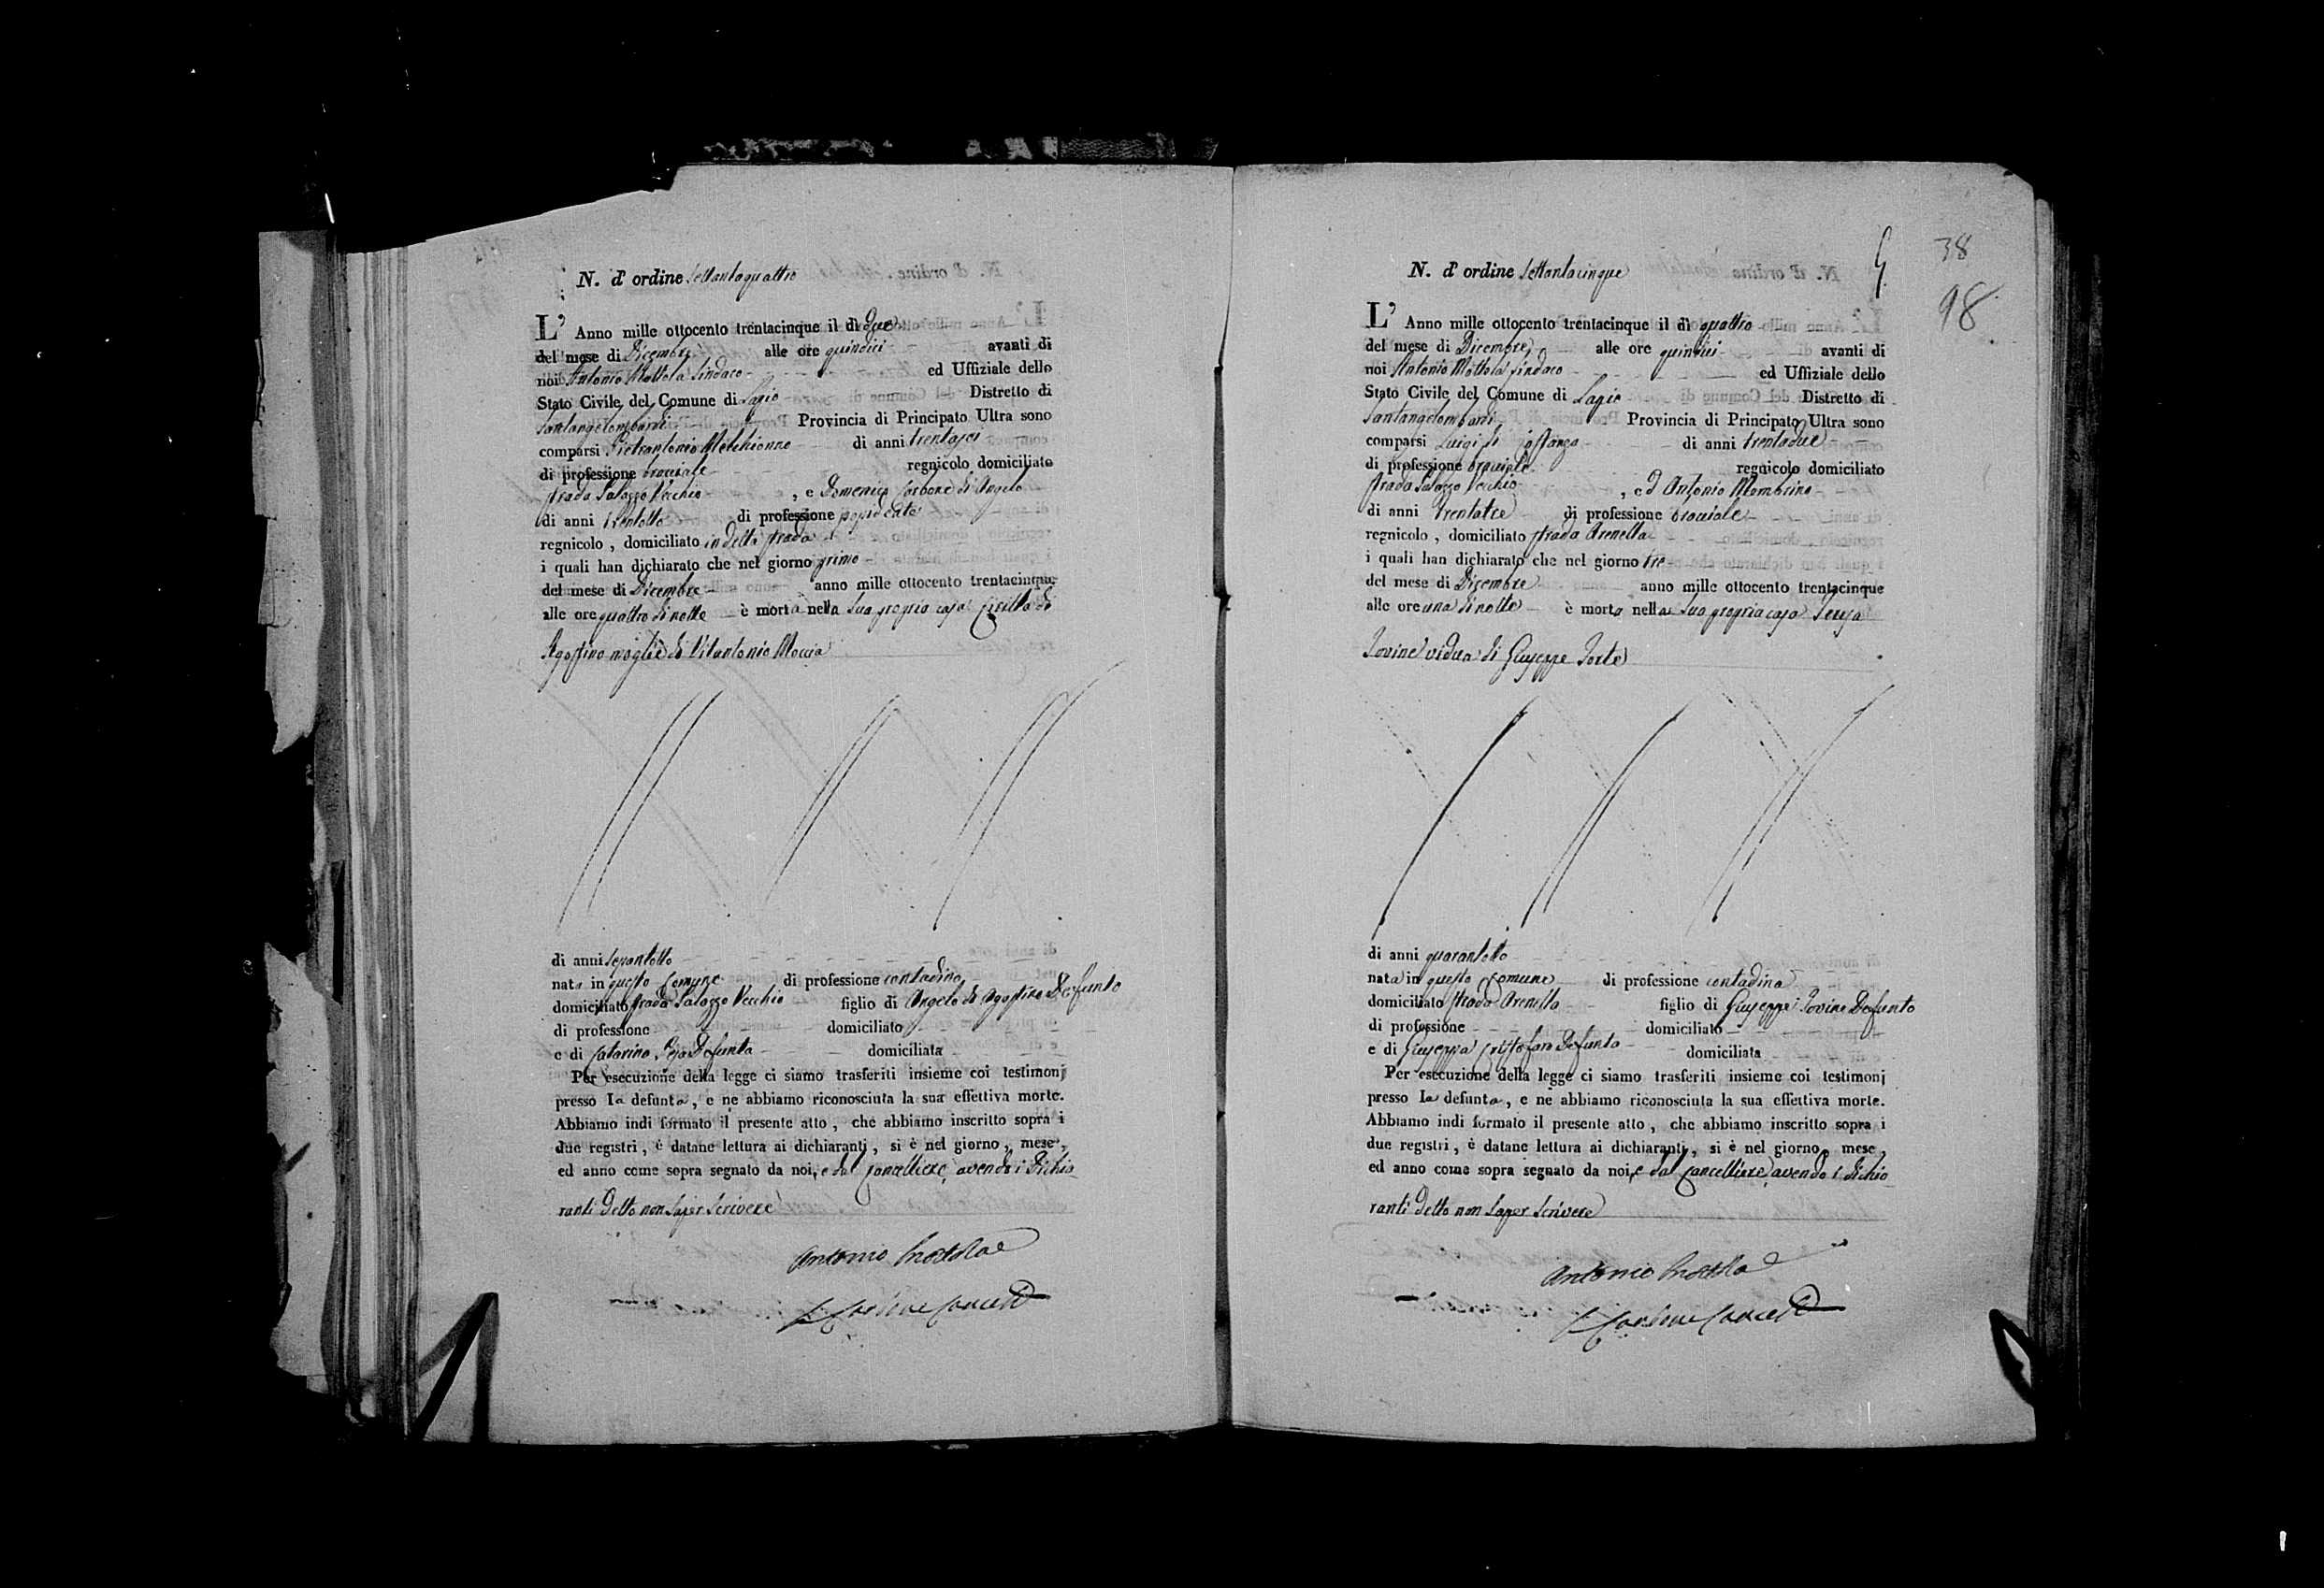 N. d'ordine Settantaquattro
L' Anno mille ottocento trentacinque il dì due
del mese di Dicembre alle ore quindici avanti di
noi Antonio Mottola Sindaco ed Uffiziale dello
Stato Civile del Comune di Lapio Distretto di
Santangelombardi Provincia di Principato Ultra sono
comparsi Pietrantonio Melchionno di anni trentasei
di professione bracciale regnicolo domiciliato
strada Palazzo Vecchio , e Domenico Carbone di Angelo
di anni trentotto di professione
regnicolo , domiciliato in detta strada
i quali han dichiarato che nel giorno primo
del mese di Dicembre anno mille ottocento trentacinque
alle ore quattro di notte è morta nella sua propria casa Cirilla di
Agostino moglie di Vitantonio Moccia
di anni sessantotto
nata in questo Comune di professione contadina
domiciliato strada Palazzo Vecchio figlio di Angelo di Agostino Defunto
di professione domiciliato
e di Catarina Defunta domiciliata
Per esecuzione della legge ci siamo trasferiti insieme coi testimonj
presso la defunta, e ne abbiamo riconosciuta la sua effettiva morte.
Abbiamo indi formato il presente atto , che abbiamo inscritto sopra i
due registri , e datane lettura ai dichiaranti , si è nel giorno , mese ,
ed anno come sopra segnato da noi, e dal Cancelliere, avendo i dichia
ranti detto non saper scrivere
Antonio Mottola
Carbone Cancell
38
98
N. d'ordine Settantacinque
L' Anno mille ottocento trentacinque il dì quattro
del mese di Dicembre alle ore quindici avanti di
noi Antonio Mottola Sindaco ed Uffiziale dello
Stato Civile del Comune di Lapio Distretto di
Santangelombardi Provincia di Principato Ultra sono
comparsi Luigi di Costanzo di anni trentadue
di professione bracciale regnicolo domiciliato
strada Palazzo Vecchio , e d Antonio Mombrino
di anni trentatre di professione bracciale
regnicolo , domiciliato strada Arenella
i quali han dichiarato che nel giorno tre
del mese di Dicembre anno mille ottocento trentacinque
alle ore una di notte è morta nella sua propria casa Teresa
Iovine vidua di Giuseppe Forte
di anni quarantotto
nata in questo Comune di professione contadina
domiciliato strada Arenella figlio di Giuseppe Iovine Defunto
di professione domiciliato
e di Giuseppa Cristofaro Defunta domiciliata
Per esecuzione della legge ci siamo trasferiti insieme coi testimonj
presso la defunta, e ne abbiamo riconosciuta la sua effettiva morte.
Abbiamo indi formato il presente atto , che abbiamo inscritto sopra i
due registri , e datane lettura ai dichiaranti, si è nel giorno, mese,
ed anno come sopra segnato da noi, e dal Cancelliere, avendo i dichia
ranti detto non saper scrivere
Antonio Mottola
Carbone Cancell